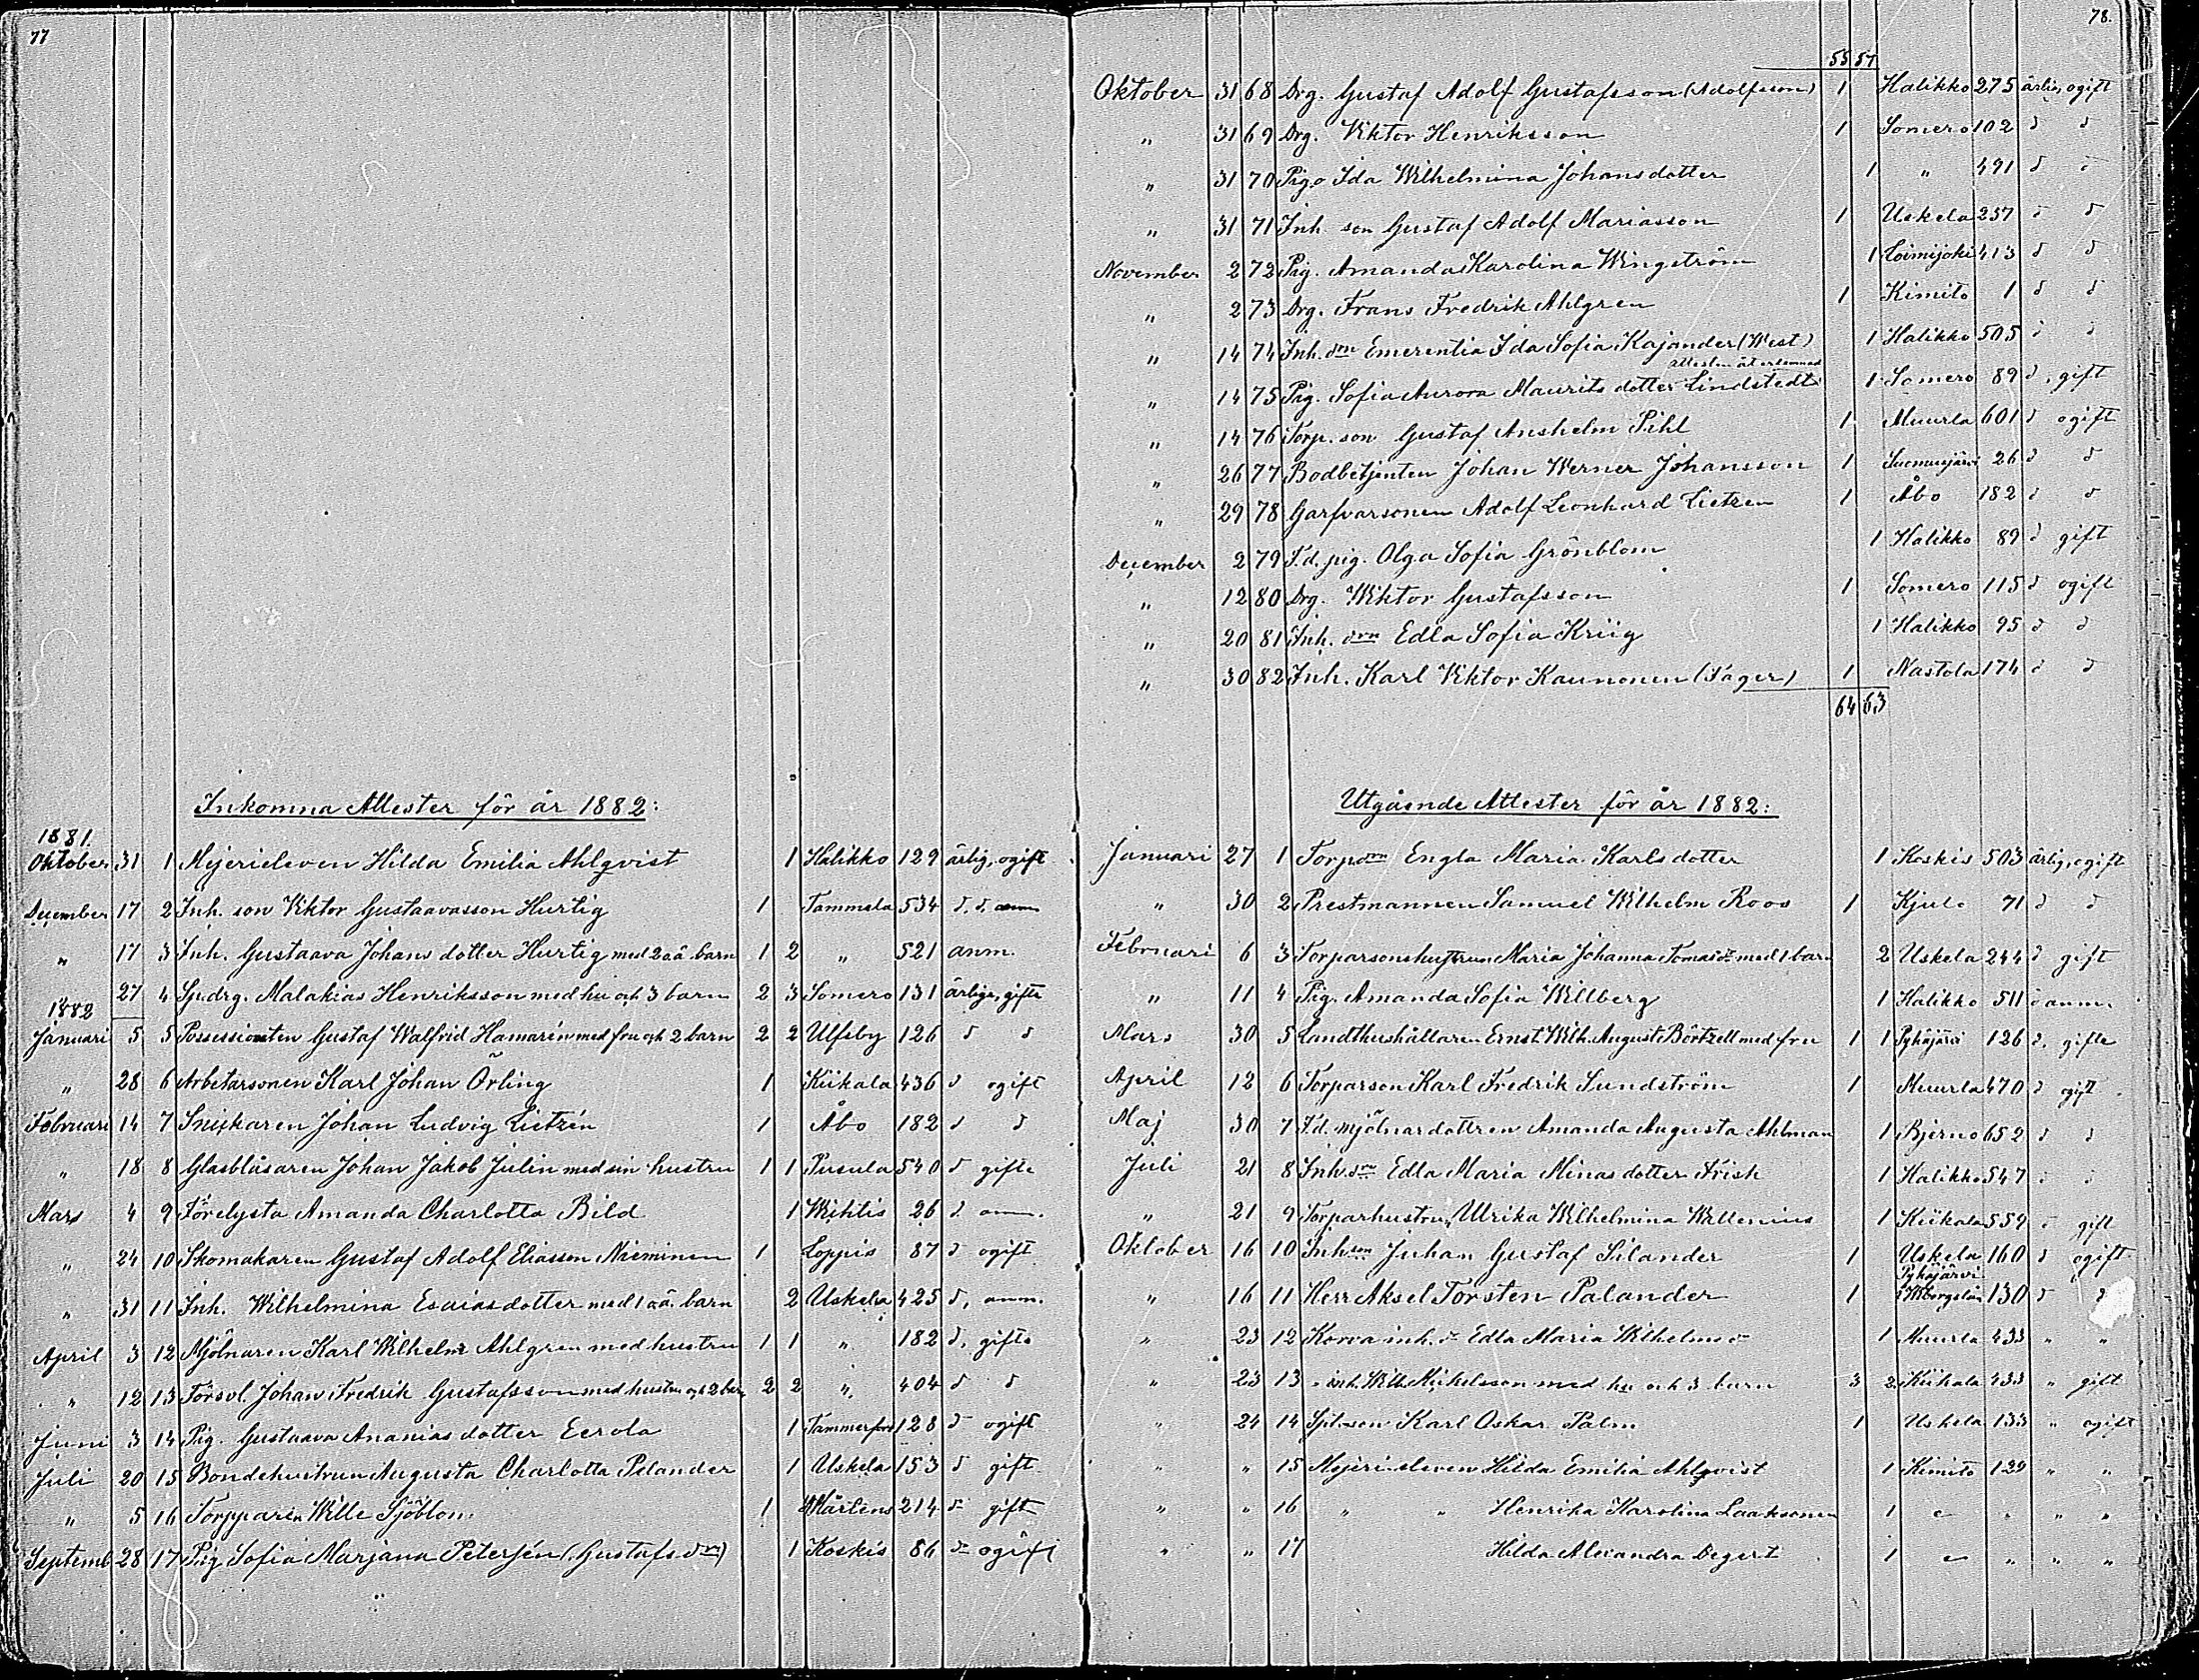 77
Inkomna Attester för år 1882:
1881.
Oktober 31 1 Mejerieleven Hilda Emilia Ahlqvist 1 Halikko 129 ärlig, ogift
December 17 2 Inh. son Viktor Gustaavasson Hurtig 1 Tammela 534 d. d. anm
" 17 3 Inh. Gustaava Johans dotter Hurtig med 2 o.ä. barn 1 2 " 521 anm.
27 4 Sp. drg. Malakias Henriksson med hu och 3 barn 2 3 Somero 131 ärliga, gifta
1882
Januari 5 5 Possessionaten Gustaf Walfrid Hamarén med fru och 2 barn 2 2 Ulfsby 126 d d
" 28 6 Arbetarsonen Karl Johan Örling 1 Kiikala 436 d ogift
Februari 14 7 Snickaren Johan Ludvig Lietzén 1 Åbo 182 d d
" 18 8 Glasblåsaren Johan Jakob Julin med sin hustru 1 1 Pusula 540 d gifte
Mars 4 9 Förelysta Amanda Charlotta Bild 1 Wichtis 26 d anm.
" 24 10 Skomakaren Gustaf Adolf Eliasson Nieminen 1 Loppis 87 d ogift
" 31 11 Inh. Wilhelmina Esaias dotter med 1 o.ä. barn 2 Uskela 425 d, anm.
April 3 12 Mjölnaren Karl Wilhelm Ahlgren med hustru 1 1 " 182 d, gifte
" 12 13 Försvl. Johan Fredrik Gustafsson med hustru och 2 bar 2 2 " 404 d d
Juni 3 14 Pig. Gustaava Ananias dotter Eerola 1 Tammerfors 128 d ogift
Juli 20 15 Bondehustrun Augusta Charlotta Pelander 1 Uskela 153 d gift
" 5 16 Torpparen Wille Sjöblom 1 S:t Mårtens 214 d gift
Septemb 28 17 Pig Sofia Marjana Petersén (Gustafs drn) 1 Koskis 86 d ogift
78.
55 57
Oktober 31 68 Drg. Gustaf Adolf Gustafsson (Adolfsson) 1 Halikko 275 ärlig, ogift
" 31 69 Drg. Viktor Henriksson 1 Somero 102 d d
" 31 70 Piga Ida Wilhelmina Johans dotter 1 " 491 d d
" 31 71 Inh. son Gustaf Adolf Mariasson 1 Uskela 257 d d
November 2 72 Pig. Amanda Karolina Wingström 1 Loimijoki 413 d d
" 2 73 Drg. Frans Fredrik Ahlgren 1 Kimito 1 d d
" 14 74 Inh. drn Emerentia Ida Sofia Kajander (West) 1 Halikko 505 d d
attesten återlemnad
" 14 75 Pig. Sofia Aurora Maurits dotter Lindstedt 1 Somero 89 d, gift
" 14 76 Torp. son Gustaf Anshelm Pihl 1 Muurla 601 d ogift
" 26 77 Bodbetjenten Johan Werner Johansson 1 Suomusjärvi 26 d d
" 29 78 Garfvarsonen Adolf Leonhard Lietzen 1 Åbo 182 d d
December 2 79 F.d. pig. Olga Sofia Grönblom 1 Halikko 89 d gift
" 12 80 Drg. Wiktor Gustafsson 1 Somero 115 d ogift
" 20 81 Inh. drn Edla Sofia Kriig 1 Halikko 95 d d
" 30 82 Inh. Karl Viktor Kaunonen (Jäger) 1 Nastola 174 d d
64 63
Utgående Attester för år 1882:
Januari 27 1 Torp. drn Engla Maria Karls dotter 1 Koskis 503 ärlig, ogift
" 30 2 Prestmannen Samuel Wilhelm Roos 1 Kjulo 71 d d
Februari 6 3 Torparsonshustrun Maria Johanna Tomas dr med 1 barn 2 Uskela 244 d gift
" 11 4 Pig. Amanda Sofia Willberg 1 Halikko 511 d anm.
Mars 30 5 Landthushållaren Ernst Wilh. August Börtzell med fru 1 1 Pyhäjärvi 126 d. gifte
April 12 6 Torparson Karl Fredrik Sundström 1 Muurla 470 d ogift
Maj 30 7 F.d. mjölnardottren Amanda Augusta Ahlman 1 Bjerno 652 d d
Juli 21 8 Inh. drn Edla Maria Minas dotter Frisk 1 Halikko 547 d d
" 21 9 Torparhustrun Ulrika Wilhelmina Wallenius 1 Kiikala 559 d gift
Oktober 16 10 Inh. son Juhan Gustaf Silander 1 Uskela 160 d ogift
" 16 11 Herr Aksel Torsten Palander 1 Pyhäjärvi i Wiborgs län 130 d d
" 23 12 Korva inh. dr Edla Maria Wilhelms dr 1 Muurla 433 " "
" 23 13 " inh. Wilh. Mikelsson med hu och 3 barn 3 2 Kiikala 433 " gift
" 24 14 Spl. son Karl Oskar Palm 1 Uskela 133 " ogift
" " 15 Mejeri eleven Hilda Emilia Ahlqvist 1 Kimito 129 " "
" " 16 " " Henrika Karolina Laaksonen 1 " " " "
" " 17 Hilda Alexandra Degert 1 " " " "